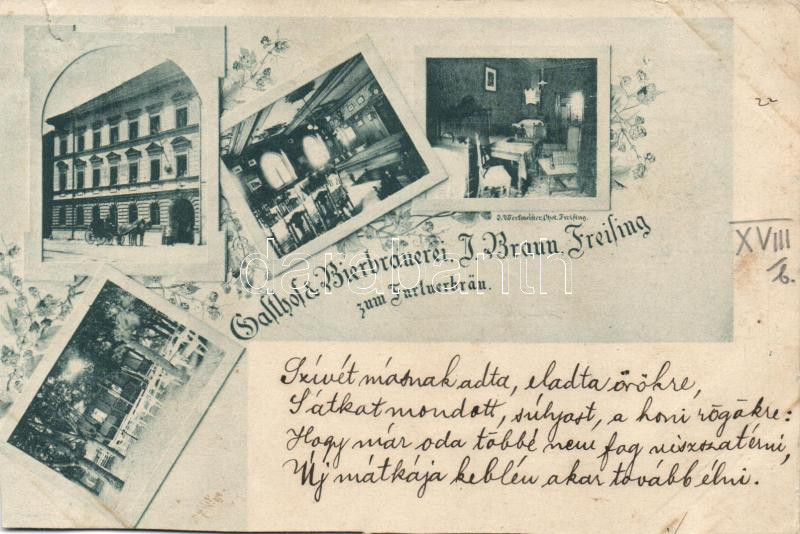 J. Werkmeister, Phot. Freising.
Gasthof & Bierbrauerei J. Braun, Freising
zum Furtnerbräu.
darabanth
XVIII
6.
Szívét másnak adta, eladta örökre,
S átkat mondott, súlyast, a honi rögökre:
Hogy már oda többé nem fog viszszatérni,
Új mátkája keblén akar tovább élni.